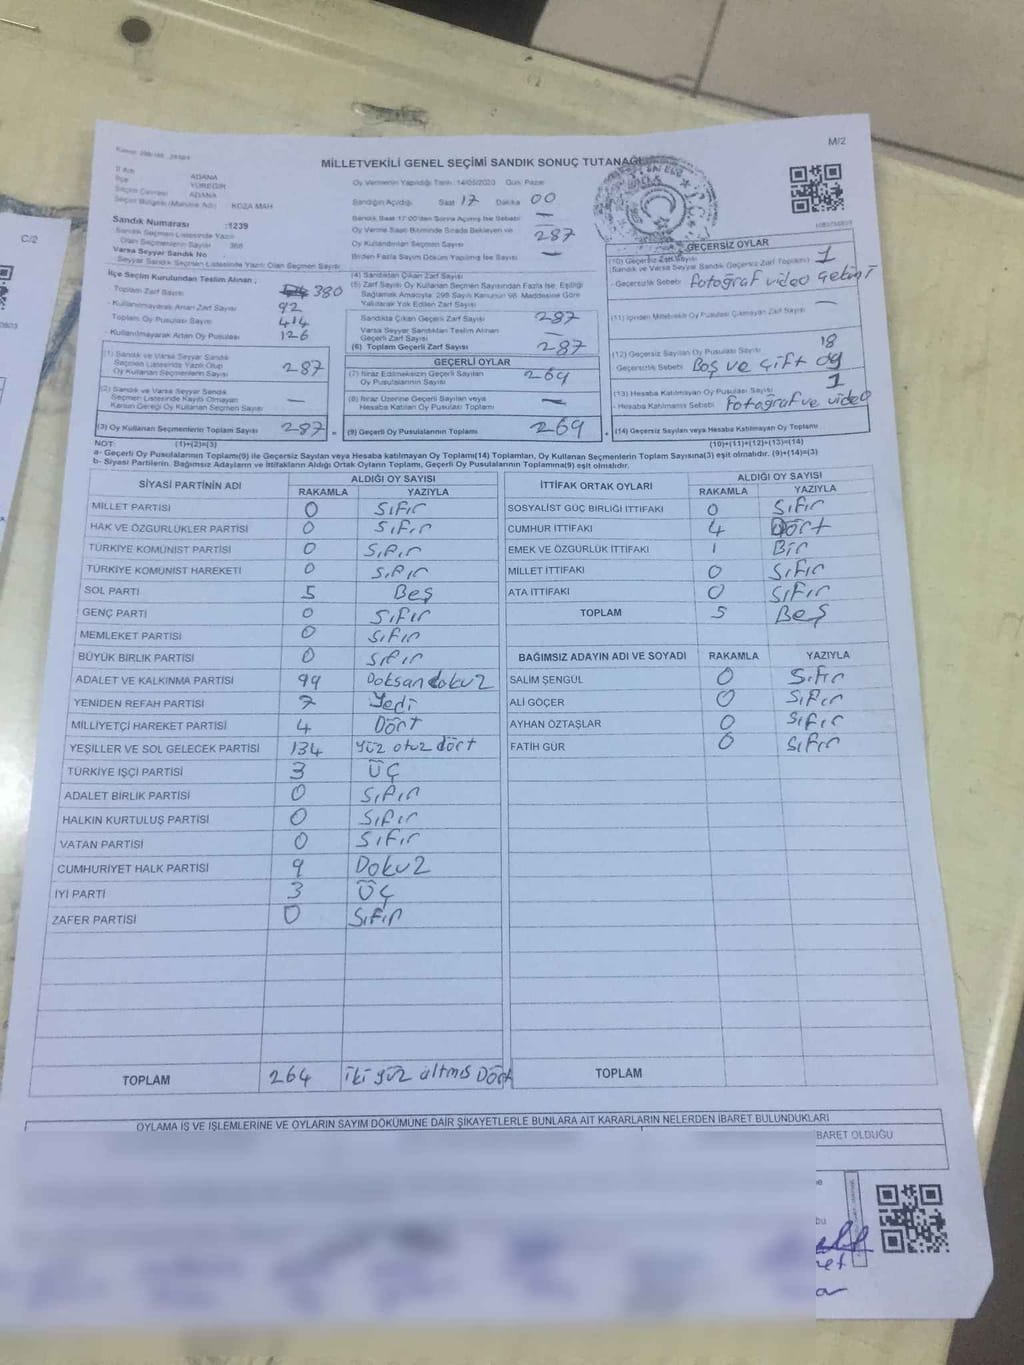 M/2
MİLLETVEKİLİ GENEL SEÇİMİ SANDIK SONUÇ TUTANAĞI
İl Adı ADANA
İlçe YÜREĞİR
Seçim Çevresi ADANA
Seçim Bölgesi (Mahalle Adı) KOZA MAH
Sandık Numarası :1239
Sandık Seçmen Listesinde Yazılı
Olan Seçmenlerin Sayısı 368
Varsa Seyyar Sandık No
Seyyar Sandık Seçmen Listesinde Yazılı Olan Seçmen Sayısı
Oy Vermenin Yapıldığı Tarih: 14/05/2023 Gün: Pazar
Sandığın Açıldığı Saat 17 Dakika 00
Sandık Saat 17:00'den Sonra Açılmış İse Sebebi —
Oy Verme Saati Bitiminde Sırada Bekleyen ve
Oy Kullandırılan Seçmen Sayısı 287
Birden Fazla Sayım Döküm Yapılmış İse Sayısı —
İlçe Seçim Kurulundan Teslim Alınan ;
Toplam Zarf Sayısı 380
- Kullanılmayarak Artan Zarf Sayısı 92
Toplam Oy Pusulası Sayısı 414
- Kullanılmayarak Artan Oy Pusulası 126
(1) Sandık ve Varsa Seyyar Sandık
Seçmen Listesinde Yazılı Olup
Oy Kullanan Seçmenlerin Sayısı 287
(2) Sandık ve Varsa Seyyar Sandık
Seçmen Listesinde Kayıtlı Olmayan
Kanun Gereği Oy Kullanan Seçmen Sayısı —
(3) Oy Kullanan Seçmenlerin Toplam Sayısı 287
(1)+(2)=(3)
(4) Sandıktan Çıkan Zarf Sayısı
(5) Zarf Sayısı Oy Kullanan Seçmen Sayısından Fazla İse, Eşitliği
Sağlamak Amacıyla; 298 Sayılı Kanunun 98. Maddesine Göre
Yakılarak Yok Edilen Zarf Sayısı
Sandıkta Çıkan Zarf Sayısı 287
Varsa Seyyar Sandıktan Teslim Alınan
Geçerli Zarf Sayısı
(6) Toplam Geçerli Zarf Sayısı 287
GEÇERLİ OYLAR
(7) İtiraz Edilmeksizin Geçerli Sayılan
Oy Pusulalarının Sayısı 269
(8) İtiraz Üzerine Geçerli Sayılan veya
Hesaba Katılan Oy Pusulası Toplamı —
(9) Geçerli Oy Pusulalarının Toplamı 269
GEÇERSİZ OYLAR
(10) Geçersiz Zarf Sayısı
(Sandık ve Varsa Seyyar Sandık Geçersiz Zarf Toplamı) 1
- Geçersizlik Sebebi: fotoğraf video çekimi
(11) İçinden Milletvekili Oy Pusulası Çıkmayan Zarf Sayısı —
(12) Geçersiz Sayılan Oy Pusulası Sayısı 18
Geçersizlik Sebebi: Boş ve çift oy
(13) Hesaba Katılmayan Oy Pusulası Sayısı 1
- Hesaba Katılmama Sebebi fotoğraf ve video
(14) Geçersiz Sayılan veya Hesaba Katılmayan Oy Toplamı
(10)+(11)+(12)+(13)=(14)
NOT:
a- Geçerli Oy Pusulalarının Toplamı(9) ile Geçersiz Sayılan veya Hesaba Katılmayan Oy Toplamı(14) Toplamları, Oy Kullanan Seçmenlerin Toplam Sayısına(3) eşit olmalıdır. (9)+(14)=(3)
b- Siyasi Partilerin, Bağımsız Adayların ve İttifakların Aldığı Ortak Oyların Toplamı, Geçerli Oy Pusulalarının Toplamına(9) eşit olmalıdır.
SİYASİ PARTİNİN ADI
ALDIĞI OY SAYISI
RAKAMLA YAZIYLA
MİLLET PARTİSİ 0 Sıfır
HAK VE ÖZGÜRLÜKLER PARTİSİ 0 Sıfır
TÜRKİYE KOMÜNİST PARTİSİ 0 Sıfır
TÜRKİYE KOMÜNİST HAREKETİ 0 Sıfır
SOL PARTİ 5 Beş
GENÇ PARTİ 0 Sıfır
MEMLEKET PARTİSİ 0 Sıfır
BÜYÜK BİRLİK PARTİSİ 0 Sıfır
ADALET VE KALKINMA PARTİSİ 99 Doksandokuz
YENİDEN REFAH PARTİSİ 7 Yedi
MİLLİYETÇİ HAREKET PARTİSİ 4 Dört
YEŞİLLER VE SOL GELECEK PARTİSİ 134 Yüz otuz dört
TÜRKİYE İŞÇİ PARTİSİ 3 ÜÇ
ADALET BİRLİK PARTİSİ 0 Sıfır
HALKIN KURTULUŞ PARTİSİ 0 Sıfır
VATAN PARTİSİ 0 Sıfır
CUMHURİYET HALK PARTİSİ 9 Dokuz
İYİ PARTİ 3 ÜÇ
ZAFER PARTİSİ 0 Sıfır
TOPLAM 264 iki yüz altmış Dört
İTTİFAK ORTAK OYLARI
ALDIĞI OY SAYISI
RAKAMLA YAZIYLA
SOSYALİST GÜÇ BİRLİĞİ İTTİFAKI 0 Sıfır
CUMHUR İTTİFAKI 4 Dört
EMEK VE ÖZGÜRLÜK İTTİFAKI 1 Bir
MİLLET İTTİFAKI 0 Sıfır
ATA İTTİFAKI 0 Sıfır
TOPLAM 5 Beş
BAĞIMSIZ ADAYIN ADI VE SOYADI RAKAMLA YAZIYLA
SALİM ŞENGÜL 0 Sıfır
ALİ GÖÇER 0 Sıfır
AYHAN ÖZTAŞLAR 0 Sıfır
FATİH GÜR 0 Sıfır
TOPLAM
OYLAMA İŞ VE İŞLEMLERİNE VE OYLARIN SAYIM DÖKÜMÜNE DAİR ŞİKAYETLERLE BUNLARA AİT KARARLARIN NELERDEN İBARET BULUNDUKLARI
BARET OLDUĞU
C/2